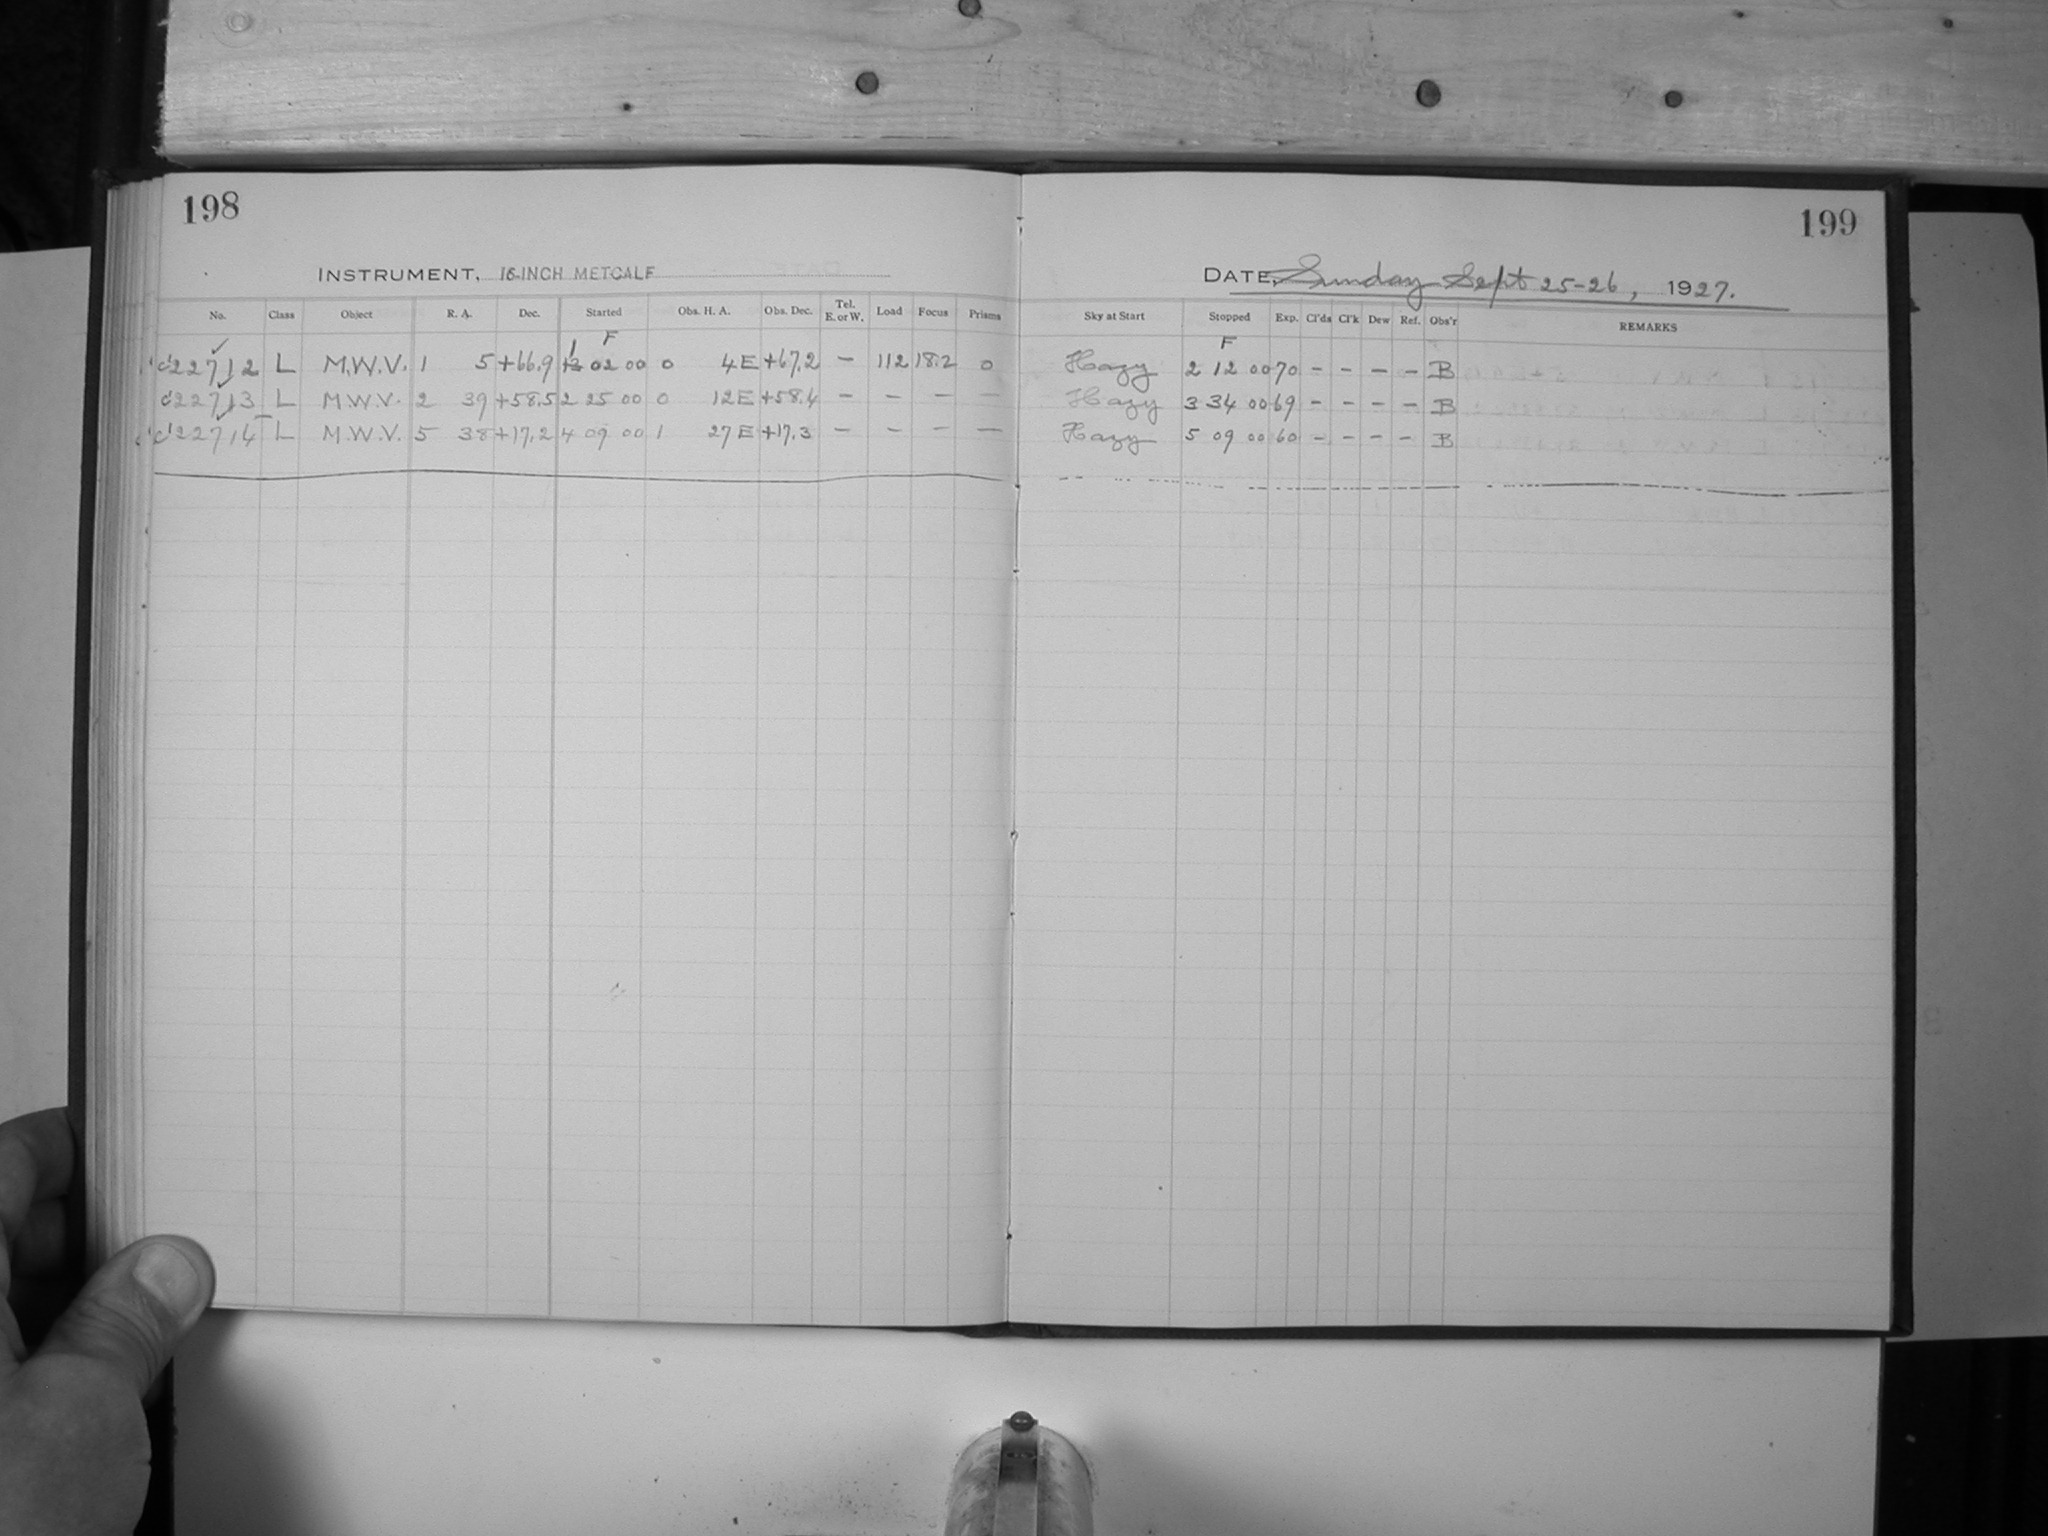 198
INSTRUMENT, 16-INCH METCALF
No. Class Object R. A. Dec. Started Obs. H. A. Obs. Dec. Tel. E. or W. Load Focus Prisms
F
22712 L M.W.V. 1 5 +66.9 1 02 00 0 4E +67.2 – 112 18.2 0
22713 L M.W.V. 2 39 +58.5 2 25 00 0 12E +58.4 – – – –
22714 L M.W.V. 5 38 +17.2 4 09 00 1 27E +17.3 – – – –
199
DATE, Sunday Sept 25-26, 1927.
Sky at Start Stopped Exp. Cl'ds Cl'k Dew Ref. Obs'r REMARKS
F
Hazy 2 12 00 70 – – – – B
Hazy 3 34 00 69 – – – – B
Hazy 5 09 00 60 – – – – B